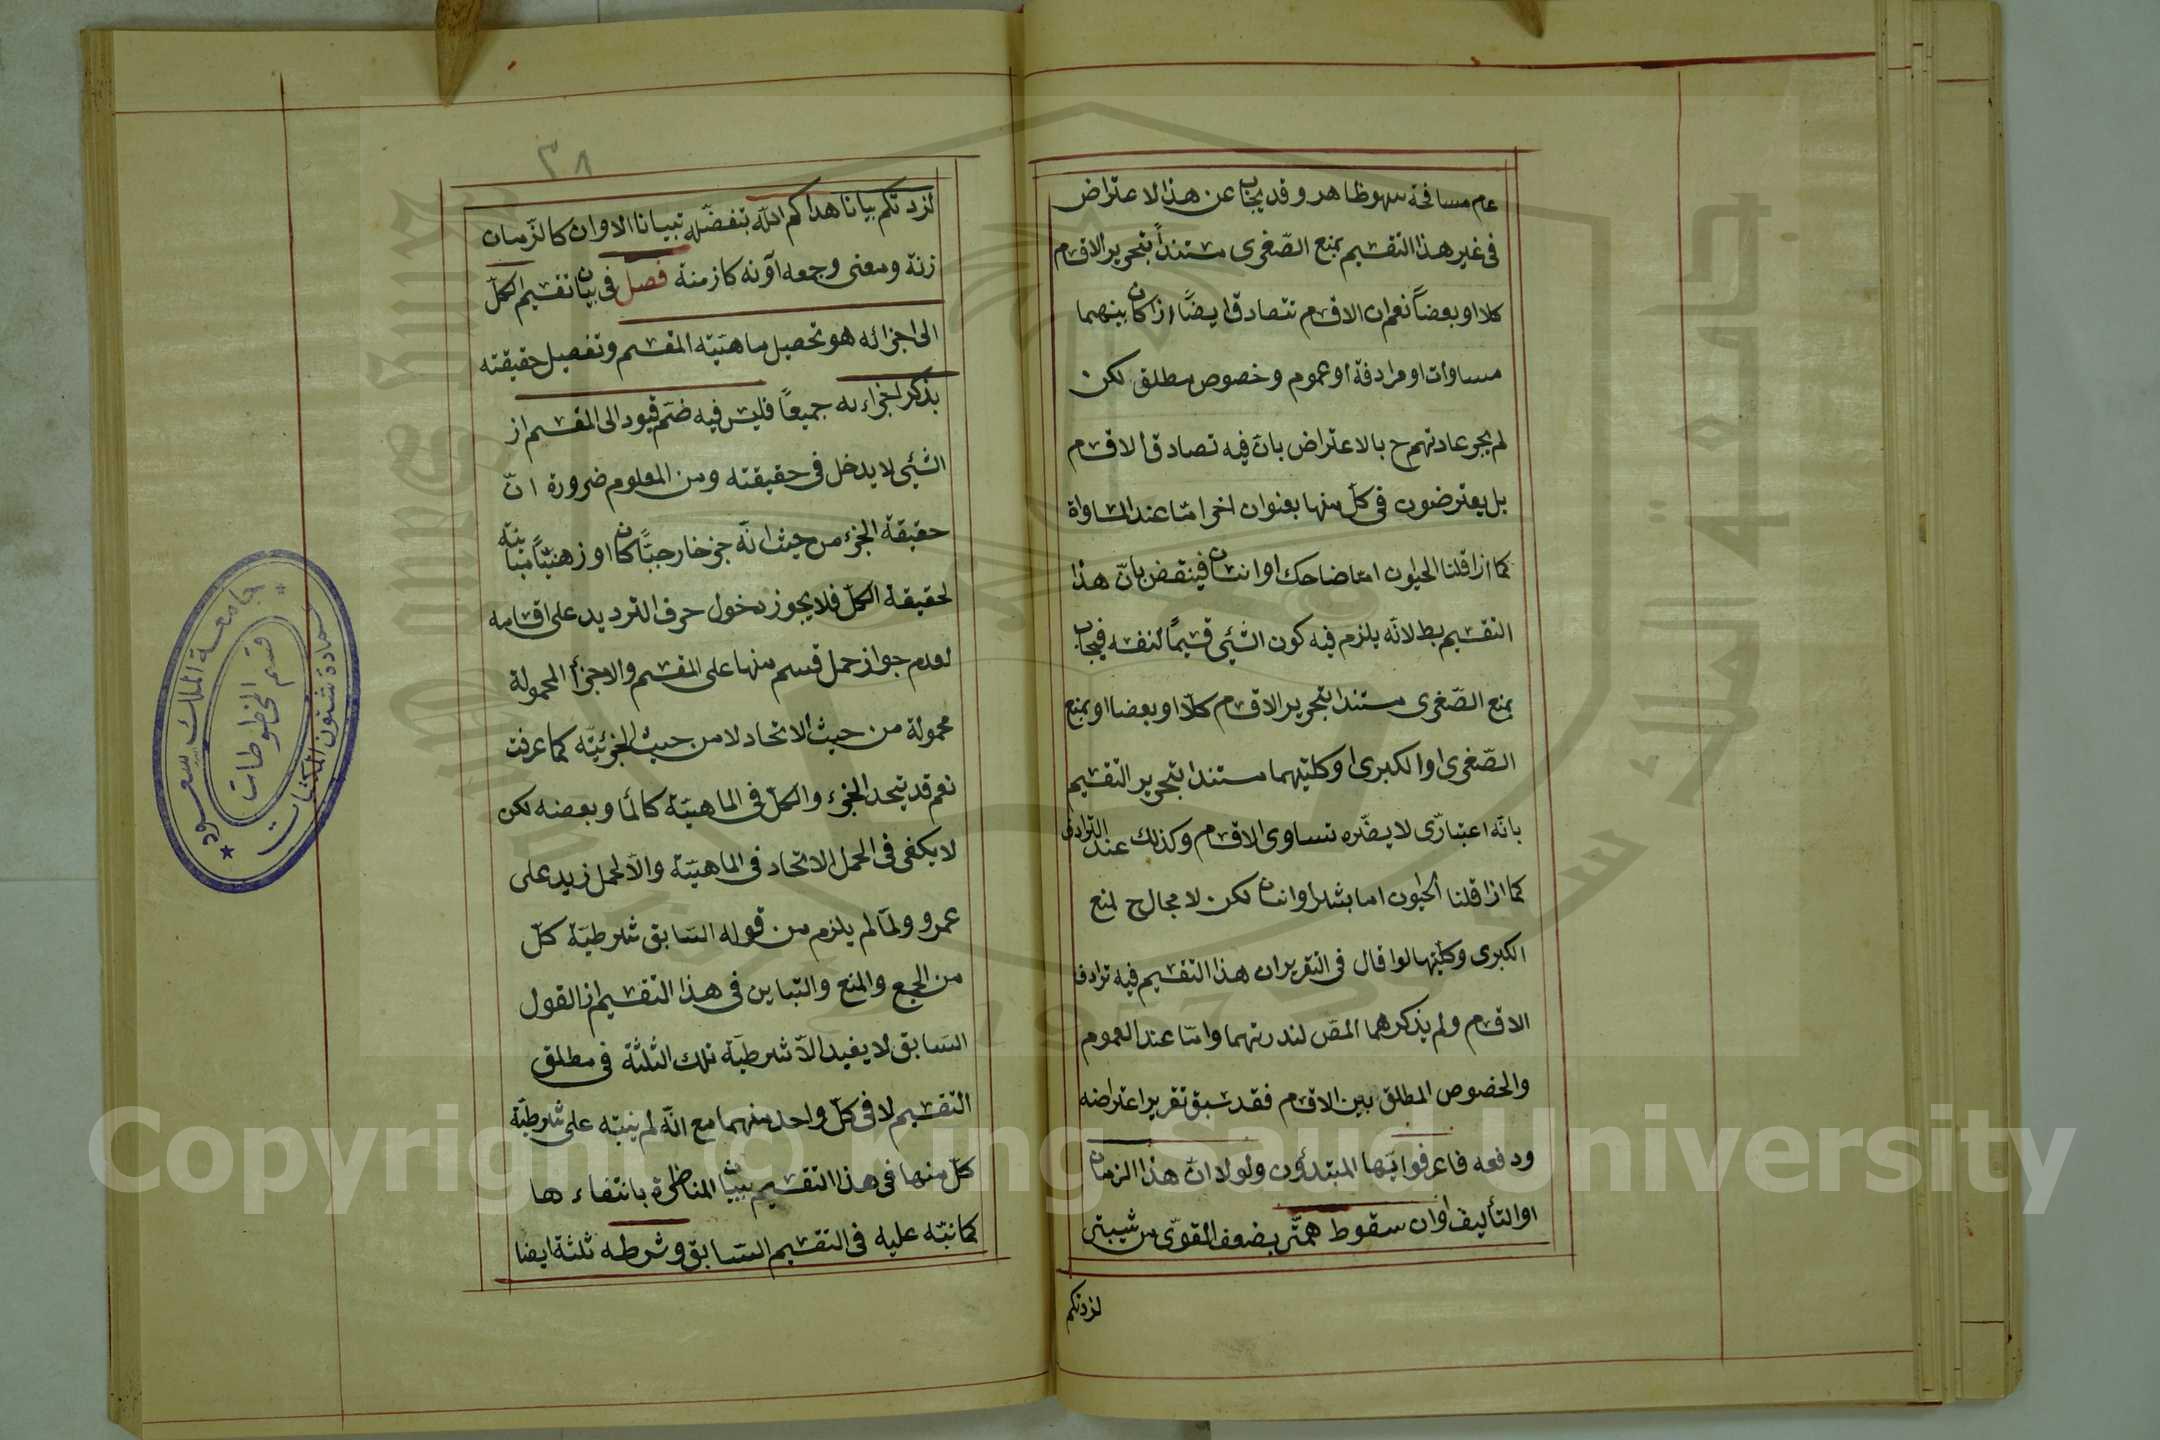 عام مسافحة سهو ظاهر وقد يجاب عن هذا الاعتراض
فى غير هذا التقسيم بمنع الصّغرى مستنداً بتحرير الاقسام
كلا او بعضاً نعم ان الاقسام تتصادق ايضًا اذا كان بينهما
مساوات او مرادفة او عموم وخصوص مطلق لكن
لم يجر عادتهم ح بالاعتراض بانّ فيه تصادق الاقسام
بل يعترضون فى كلّ منها بعنوان اخر امّا عند المساواة
كما اذا قلنا الحيوان امّا ضاحك او انسان فينقض بانّ هذا
التقسيم بط لانّه يلزم فيه كون الشّيئى قسيمًا لنفسه فيجاب
بمنع الصّغرى مستندا بتحرير الاقسام كلّا او بعضا او بمنع
الصّغرى او الكبرى او كليتهما مستندا بتحرير التّقسيم
بانّه اعتبارّى لا يضّره تساوى الاقسام وكذلك عند التّرادف
كما اذا قلنا الحيوان اما بشر او انسان لكن لا مجال ح لمنع
الكبرى وكليّتها لو قال فى التّقرير ان هذا التقسيم فيه ترادف
الاقسام ولم يذكرهما المصّ لندرتهما وامّا عند العموم
والخصوص المطلق بين الاقسام فقد سبق تقرير اعتراضه
ودفعه فاعرفوا ايّها المبتدؤن ولولا انّ هذا الزمان
او التأليف اوان سقوط همّتى بضعف القوّى من شيبتى
لزدتكم
٣٨
لزدتكم بيانا هداكم اللّه بتفضّله تبيانا الاوان كالزّمان
زنة ومعنى وجمعه آونه كازمنة فصل فى بيان تقسيم الكلّ
الى اجزائه هو تحصيل ماهيّته المقسم وتفصيل حقيقته
بذكر اجزاءه جميعاً فليس فيه ضمّ قيود الى المقسم از
الشّيئى لا يدخل فى حقيقته ومن المعلوم ضرورة انّ
حقيقة الجزء من حيث انّه جزء خارجيّاً كان او زهنيّاً مباينة
لحقيقة الكلّ فلا يجوز دخول حرف الترديد على اقسامه
لعدم جواز حمل قسم منها على المقسم والاجزأ المحمولة
محمولة من حيث الاتحاد لا من حيث الجزئيّة كما عرفت
نعم قد يتحد الجزء والكلّ فى الماهيّة كالمأ وبعضه لكن
لا يكفى فى الحمل الاتحاد فى الماهيّة والّا لحمل زيد على
عمرو ولمّا لم يلزم من قوله السّابق شرطيّة كلّ
من الجمع والمنع والتّباين فى هذا التقسيم از القول
السّابق لا يفيد الّا شرطيّة تلك الثلثة فى مطلق
التّقسيم لا فى كلّ واحد منهما مع انّه لم ينبّه على شرطيّة
كلّ منها فى هذا التقسيم ببيان المناظرة بانتفاء ها
كما نبّه عليه فى التقسيم السّابق وشرطه ثلثة ايضا
جامعة الملك سعود
عمادة شئون المكتبات
قسم المخطوطات
جامعة الملك سعود
King Saud University
1957
Copyright © King Saud University